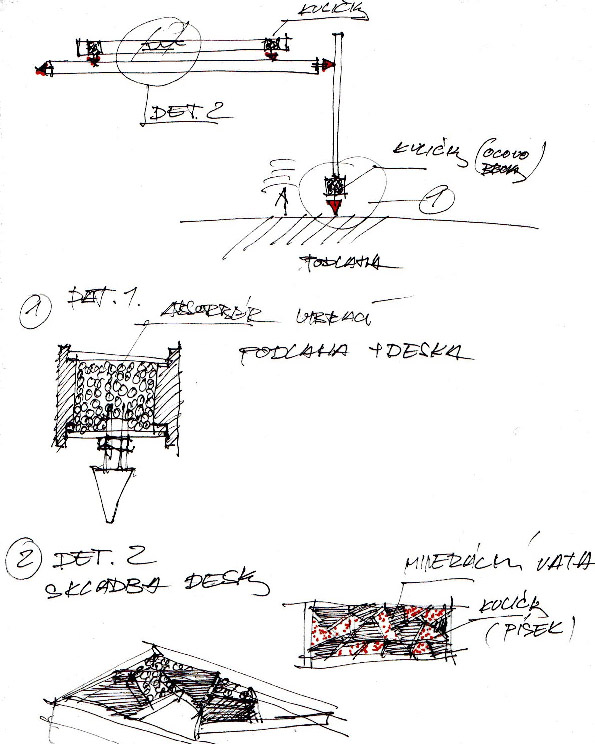 KULIČKY
DET. 2
KULIČKY (OLOVO
1
PODLAHA
1 DET. 1.
ABSORBÉR VIBRACÍ
PODLAHA + DESKA
2 DET. 2
SKLADBA DESKY
MINERÁLNÍ VATA
KULIČKY
(PÍSEK)